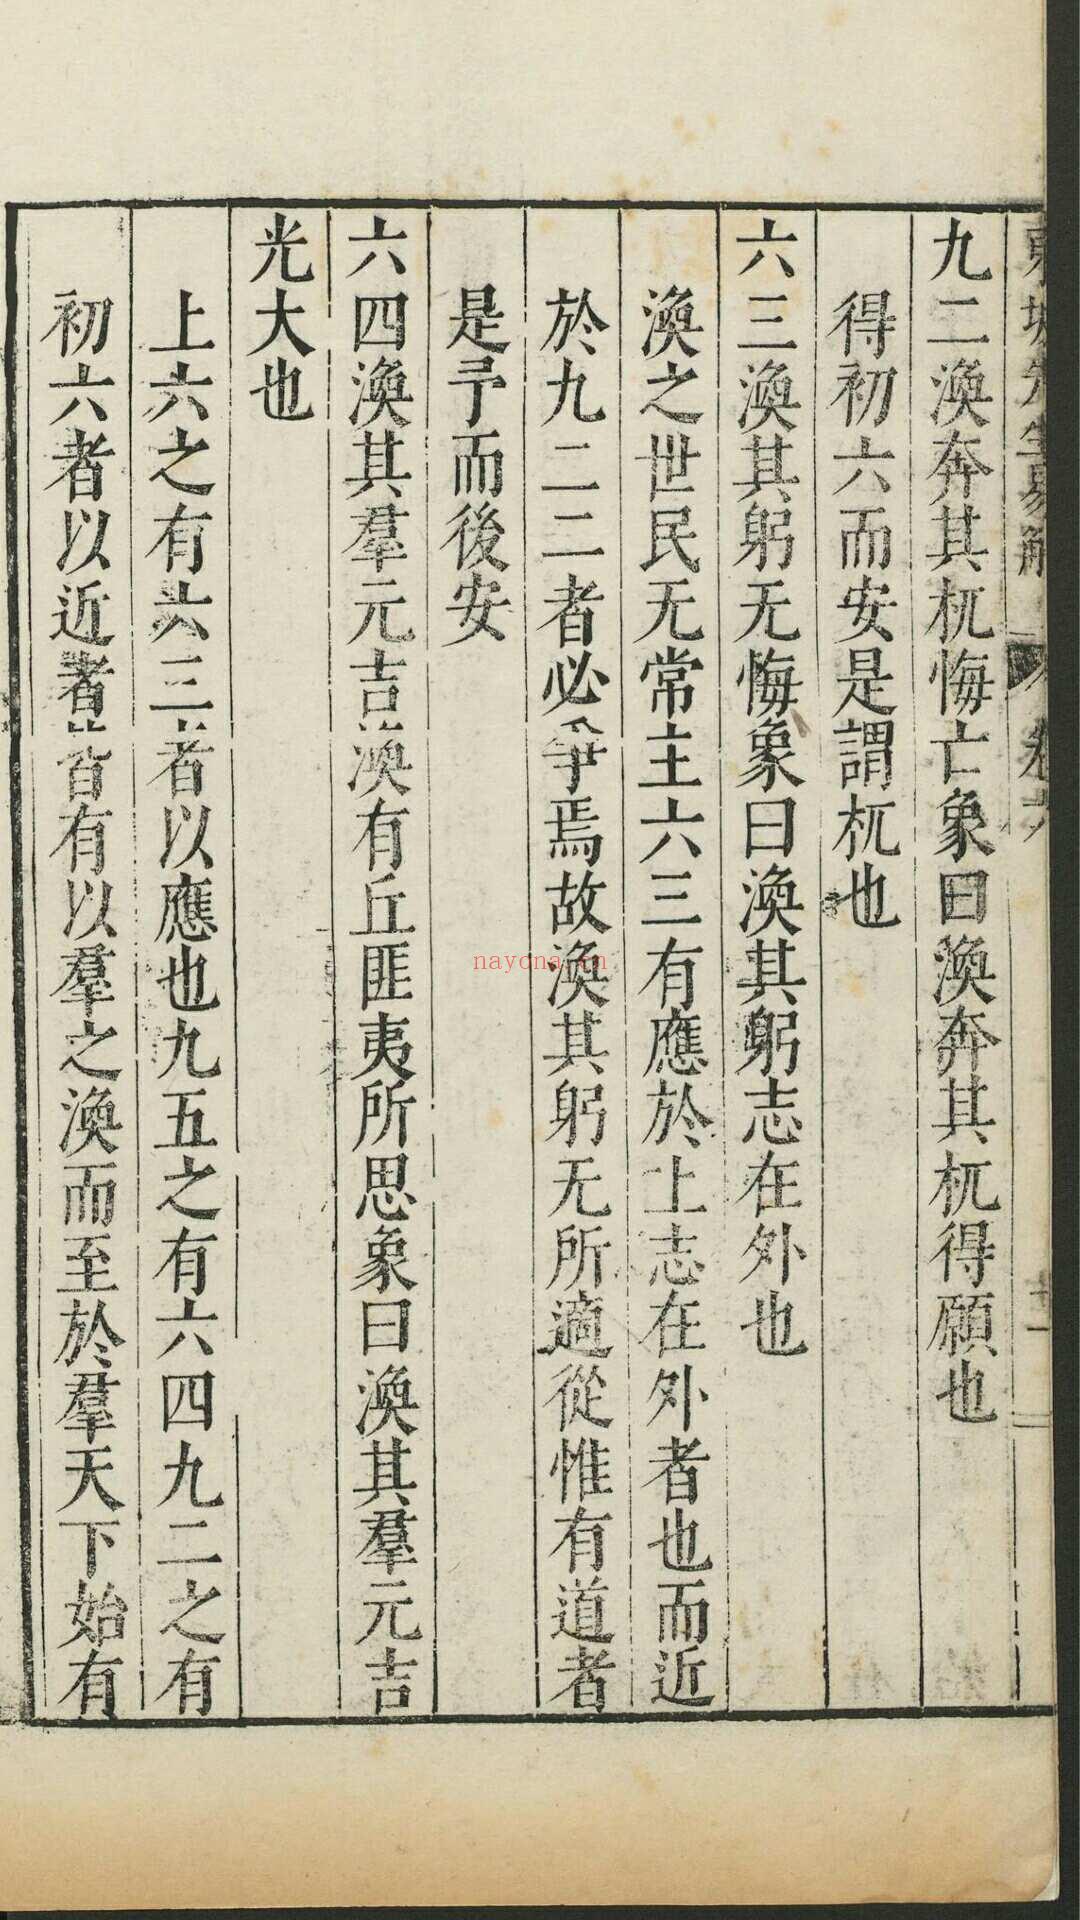 東坡先生易解 卷六 十一
九二渙奔其杌悔亡象曰渙奔其杌得願也
得初六而安是謂杌也
六三渙其躬无悔象曰渙其躬志在外也
渙之世民无常主六三有應於上志在外者也而近
於九二二者必爭焉故渙其躬无所適從惟有道者
是予而後安
六四渙其羣元吉渙有丘匪夷所思象曰渙其羣元吉
光大也
上六之有六三者以應也九五之有六四九二之有
初六者以近者皆有以羣之渙而至於羣天下始有